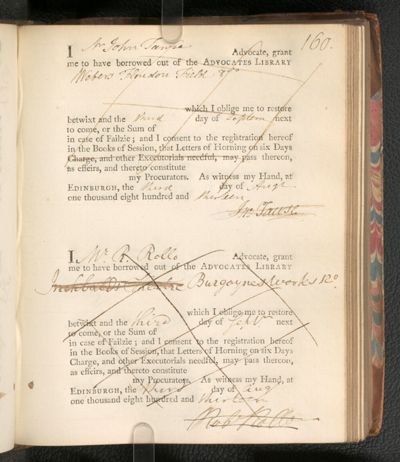 160.
I Mr John Tawse Advocate, grant
me to have borrowed out of the ADVOCATES LIBRARY
Field 8vo
which I oblige me to restore
betwixt and the third day of Septem next
to come, or the Sum of
in case of Failzie; and I consent to the registration hereof
in the Books of Session, that Letters of Horning on six Days
Charge, and other Executorials needful, may pass thereon,
as effeirs, and thereto constitute
my Procurators. As witness my Hand, at
EDINBURGH, the third day of Augt
one thousand eight hundred and thirteen
Jn. Tawse
I Mr R. Rollo Advocate, grant
me to have borrowed out of the ADVOCATES LIBRARY
Inchbald's Theatre Burgoyne's Works 12o
which I oblige me to restore
betwixt and the third day of Febr next
to come, or the Sum of
in case of Failzie; and I consent to the registration hereof
in the Books of Session, that Letters of Horning on six Days
Charge, and other Executorials needful, may pass thereon,
as effeirs, and thereto constitute
my Procurators. As witness my Hand, at
EDINBURGH, the third day of Aug
one thousand eight hundred and thirteen
Rob Rollo